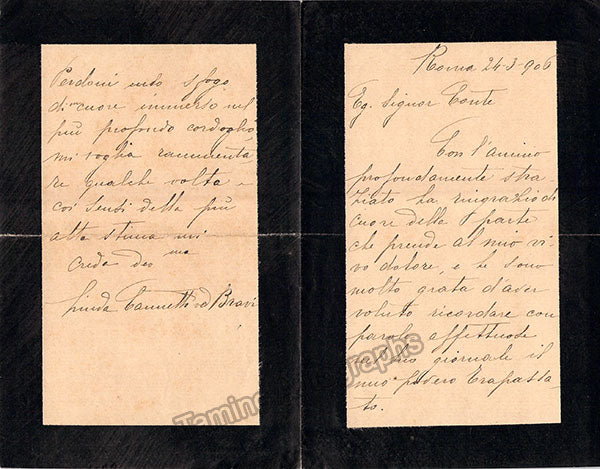 Roma 24-3-906
Eg. Signor Conte
Con l'animo
profondamente stra
ziato La ringrazio di
cuore della parte
che prende al mio vi
vo dolore, e Le sono
molto grata d'aver
voluto ricordare con
parole affettuose
nel suo giornale il
mio povero trapassa
to.
Perdoni sfogo
di cuore immerso nel
più profondo cordoglio,
mi voglia rammenta
re qualche volta e
coi sensi della più
alta stima mi
creda dev ma
Linda
Tamino Autographs